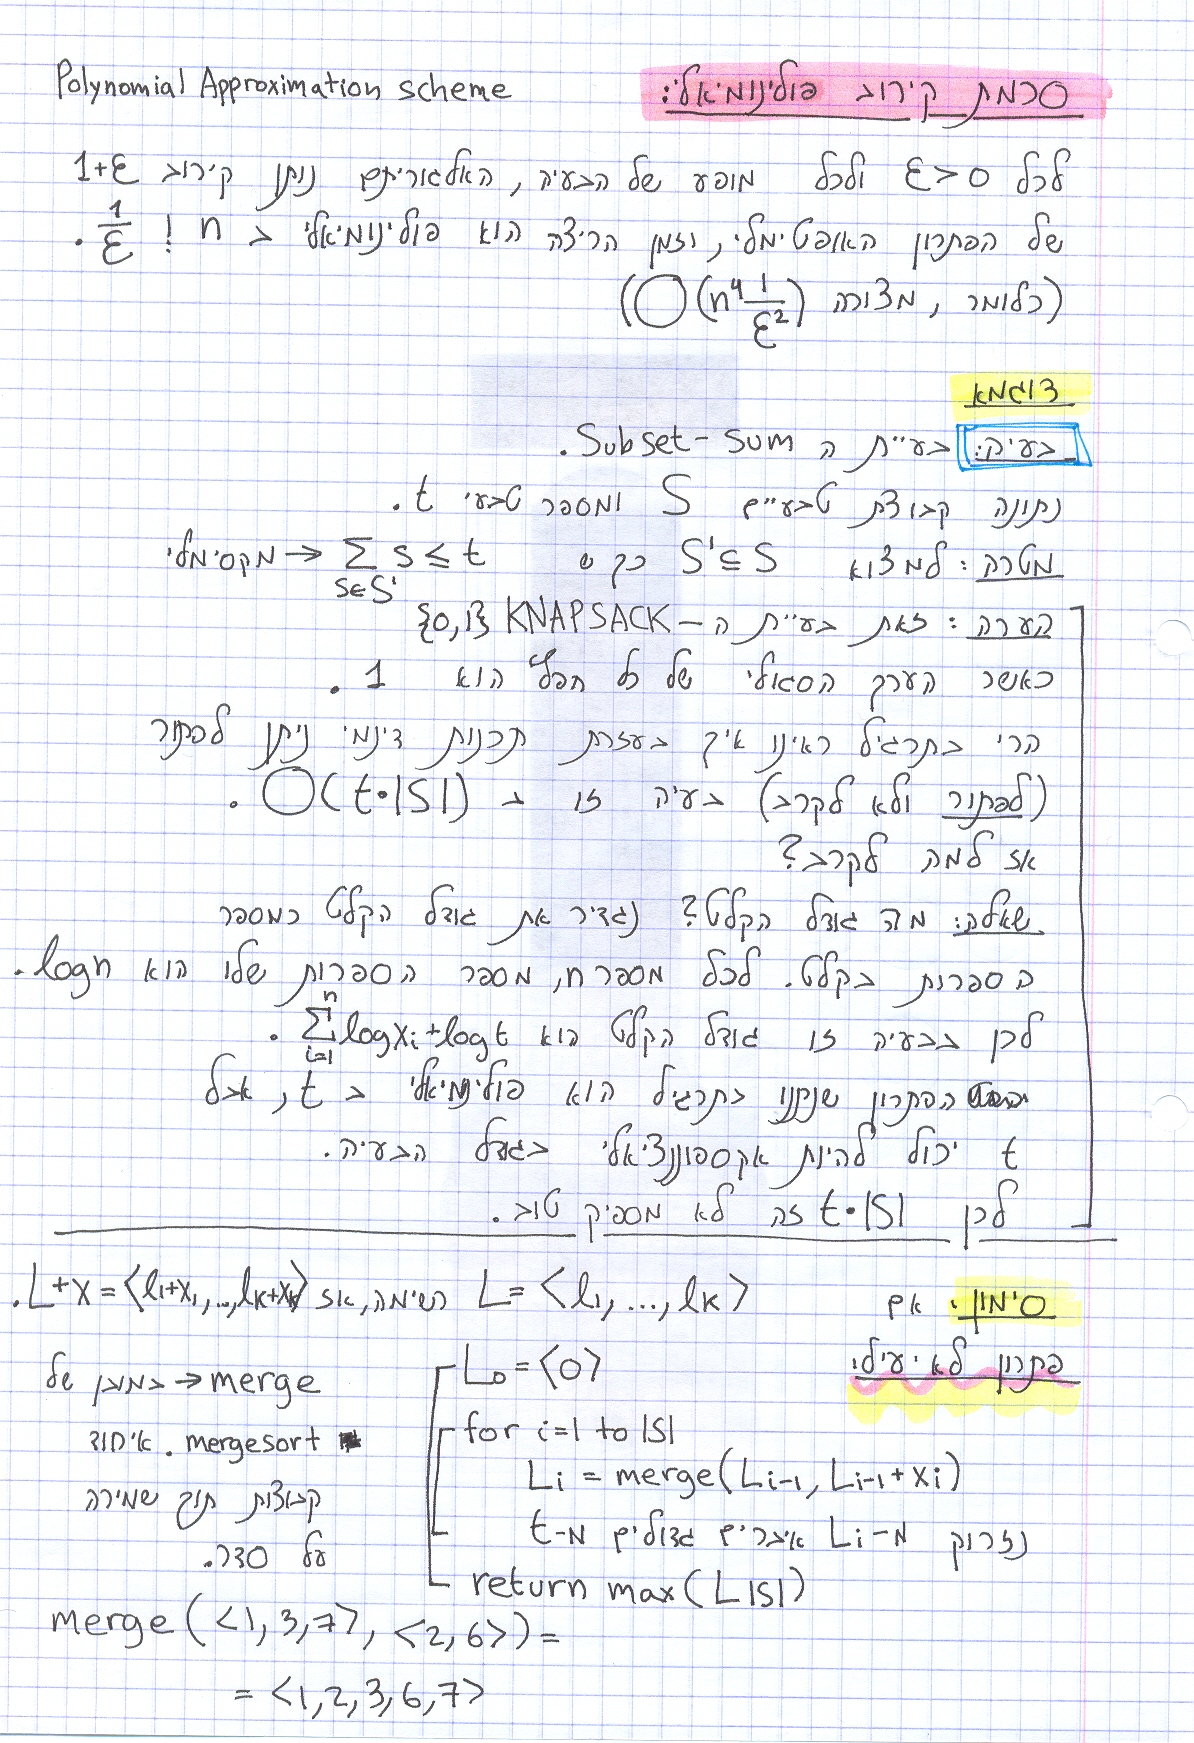 סכמת קירוב פולינומיאלי: Polynomial Approximation scheme
לכל ε>0 ולכל מופע של הבעיה, האלגוריתם נותן קירוב 1+ε
של הפתרון האופטימלי, וזמן הריצה הוא פולינומיאלי ב n ! 1/ε.
(כלומר, מצורה O(n⁴ 1/ε²))
דוגמא
בעיה: בעיית ה Subset-sum.
נתונה קבוצת טבעיים S ומספר טבעי t.
מטרה: למצוא S'⊆S כך ש Σ_{s∈S'} s ≤ t → מקסימלי
הערה: זאת בעיית ה- {0,1} KNAPSACK
כאשר הערך הסגולי של כל חפץ הוא 1.
הרי בתרגיל ראינו איך בעזרת תכנות דינמי ניתן לפתור
(לפתור ולא לקרב) בעיה זו ב O(t·|S|).
אז למה לקרב?
שאלה: מה גודל הקלט? נגדיר את גודל הקלט כמספר
הספרות בקלט. לכל מספר n, מספר הספרות שלו הוא logn.
לכן בבעיה זו גודל הקלט הוא Σ_{i=1}^{n} logxi+logt.
הפתרון שנתנו בתרגיל הוא פולינמיאלי ב t, אבל
t יכול להיות אקספוננציאלי בגודל הבעיה.
לכן t·|S| זה לא מספיק טוב.
סימון: אם L=<l₁,...,lₖ> רשימה, אז L+x=<l₁+x₁,...,lₖ+xₖ>.
פתרון לא יעיל:
L₀=<0>
for i=1 to |S|
Li = merge(Li-1, Li-1+xi)
נזרוק מ-Li איברים גדולים מ-t
return max(L|S|)
merge → במובן של
mergesort. איחוד
קבוצות תוך שמירה
על סדר.
merge(<1,3,7>, <2,6>)=
=<1,2,3,6,7>